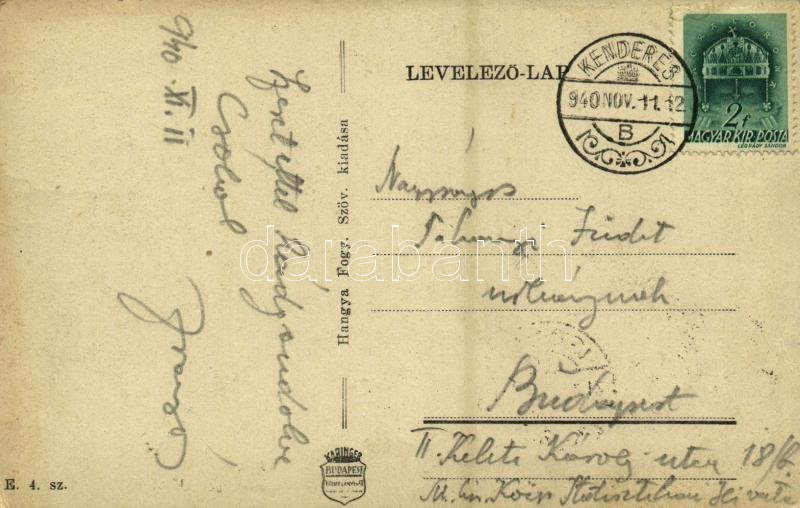 LEVELEZŐ-LAP
KENDERES
940 NOV. 11. 12
B
2 f
MAGYAR KIR. POSTA
LÉGRÁDY SÁNDOR
940. XI. 11
Szeretettel rád gondolva
Csókol
Hangya Fogy. Szöv. kiadása
Nagyságos
Judit
úrleánynak
Budapest
II. Keleti Károly utca 18/b.
M. kir. Közp. Statisztikai Hivatal
KARINGER
BUDAPEST
E. 4. sz.
darabanth